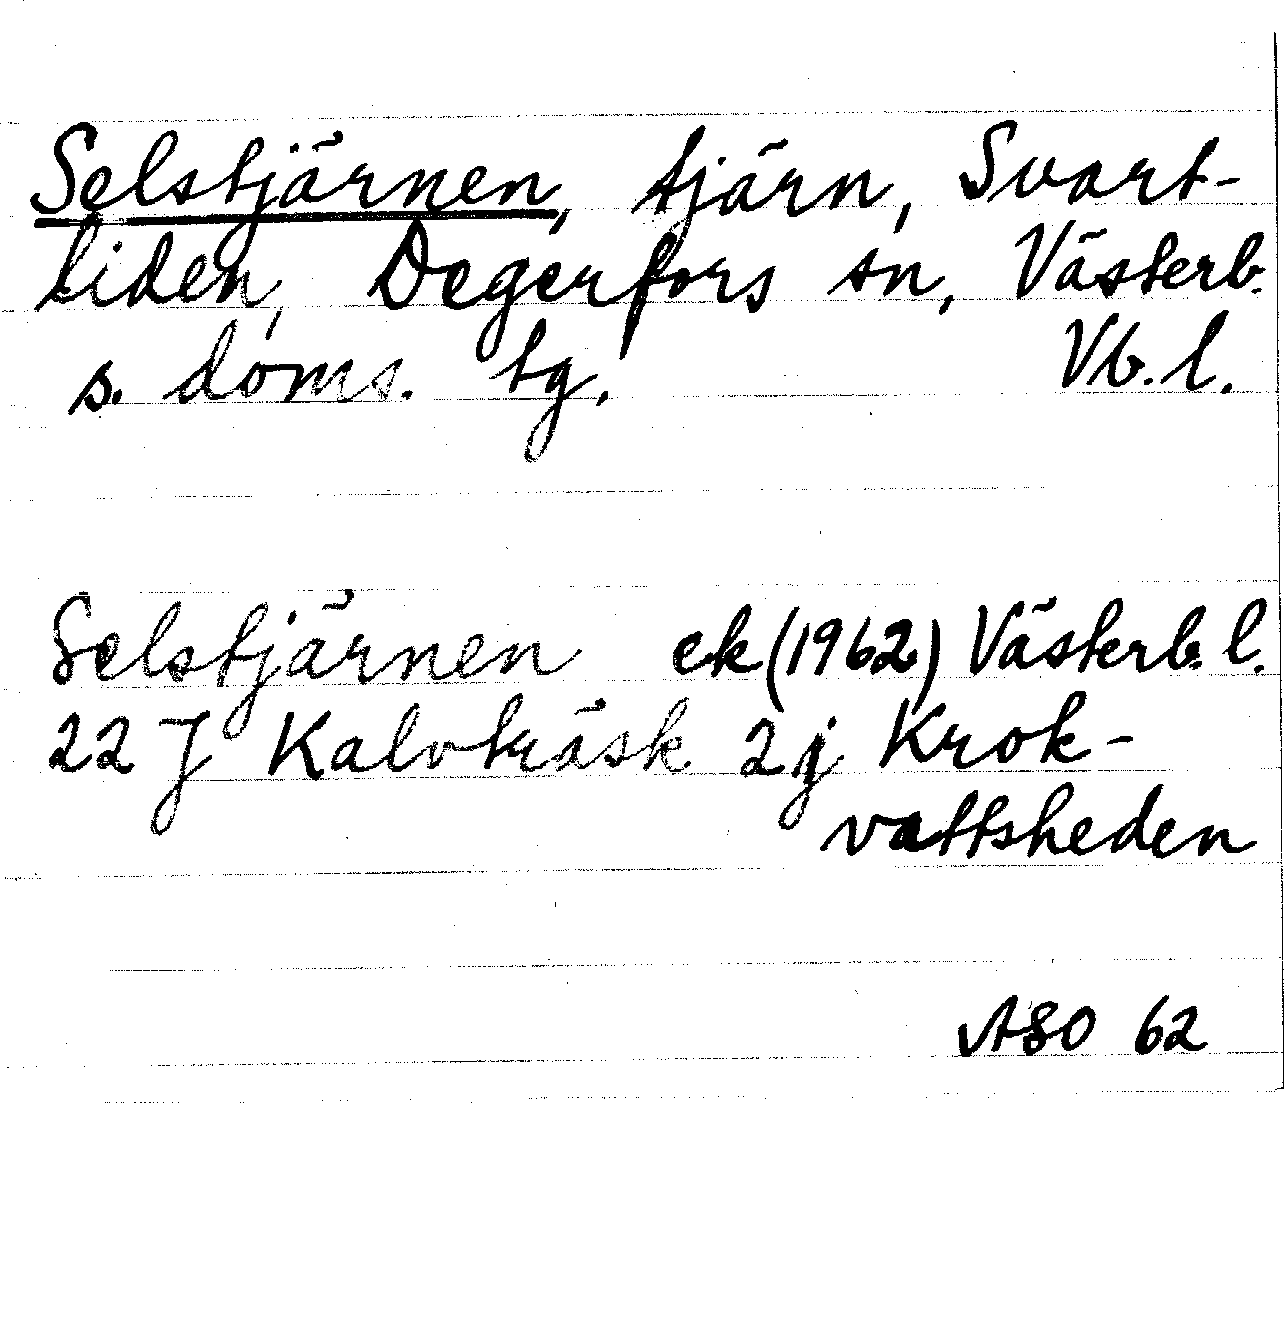 Selstjärnen, tjärn, Svart-
liden, Degerfors sn, Västerb.
s. doms. tg. Vb. l.
Selstjärnen ek (1962) Västerb. l.
22 J Kalvträsk 2j Krok-
vattsheden
ASO 62